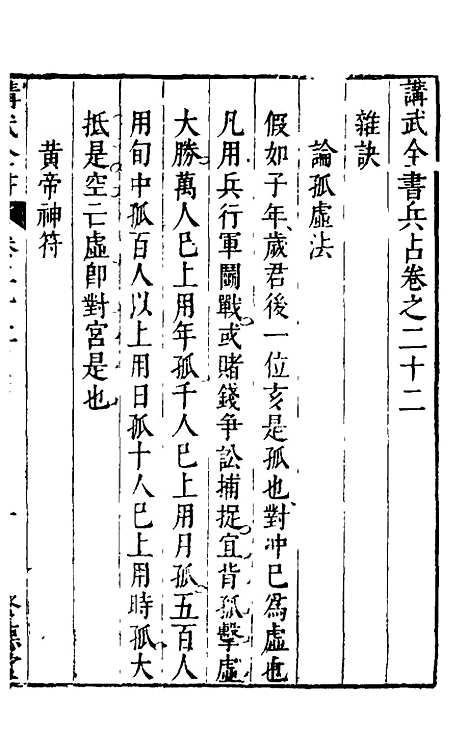 講武全書兵占卷之二十二
雜訣
論孤虛法
假如子年歲君後一位亥是孤也對冲巳爲虛也
凡用兵行軍鬬戰或賭錢爭訟捕捉宜背孤擊虛
大勝萬人巳上用年孤千人巳上用月孤五百人
用旬中孤百人以上用日孤十人巳上用時孤大
抵是空亡虛卽對宮是也
黄帝神符